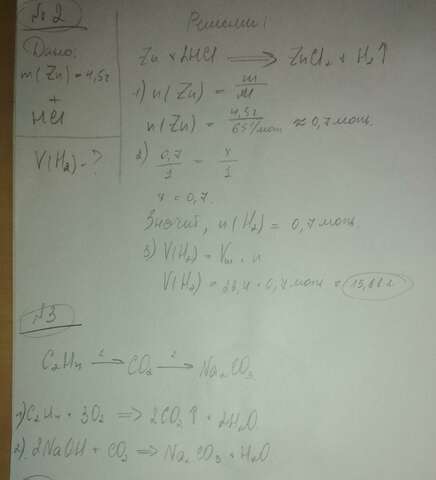 №2
Дано:
m(Zn)=4,5г
+
HCl
V(H₂)-?
Решение:
Zn + 2HCl ⟹ ZnCl₂ + H₂↑
1) n(Zn) = m/M
n(Zn) = 4,5г/65г/моль ≈ 0,7 моль.
2) 0,7/1 = x/1
x = 0,7.
Значит, n(H₂) = 0,7 моль.
3) V(H₂) = Vm · n
V(H₂) = 22,4 · 0,7 моль = 15,68 л
№3
C₂H₄ →¹ CO₂ →² Na₂CO₃
1) C₂H₄ + 3O₂ ⟹ 2CO₂↑ + 2H₂O
2) 2NaOH + CO₂ ⟹ Na₂CO₃ + H₂O